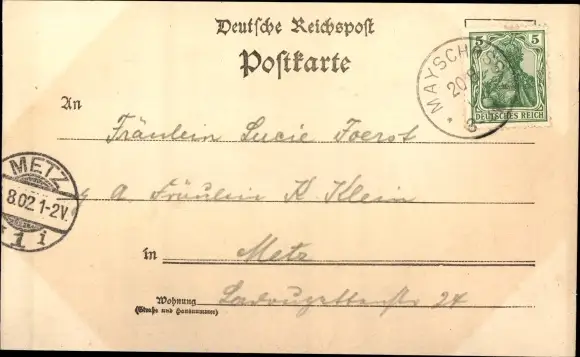 Deutsche Reichspost
Postkarte
5 5
DEUTSCHES REICH
MAYSCH
20 8
An
Fräulein Lucie Foerst
METZ
8.02 1-2V.
1 i
A. Fräulein K. Klein
in Metz
Wohnung
(Straße und Hausnummer)
24